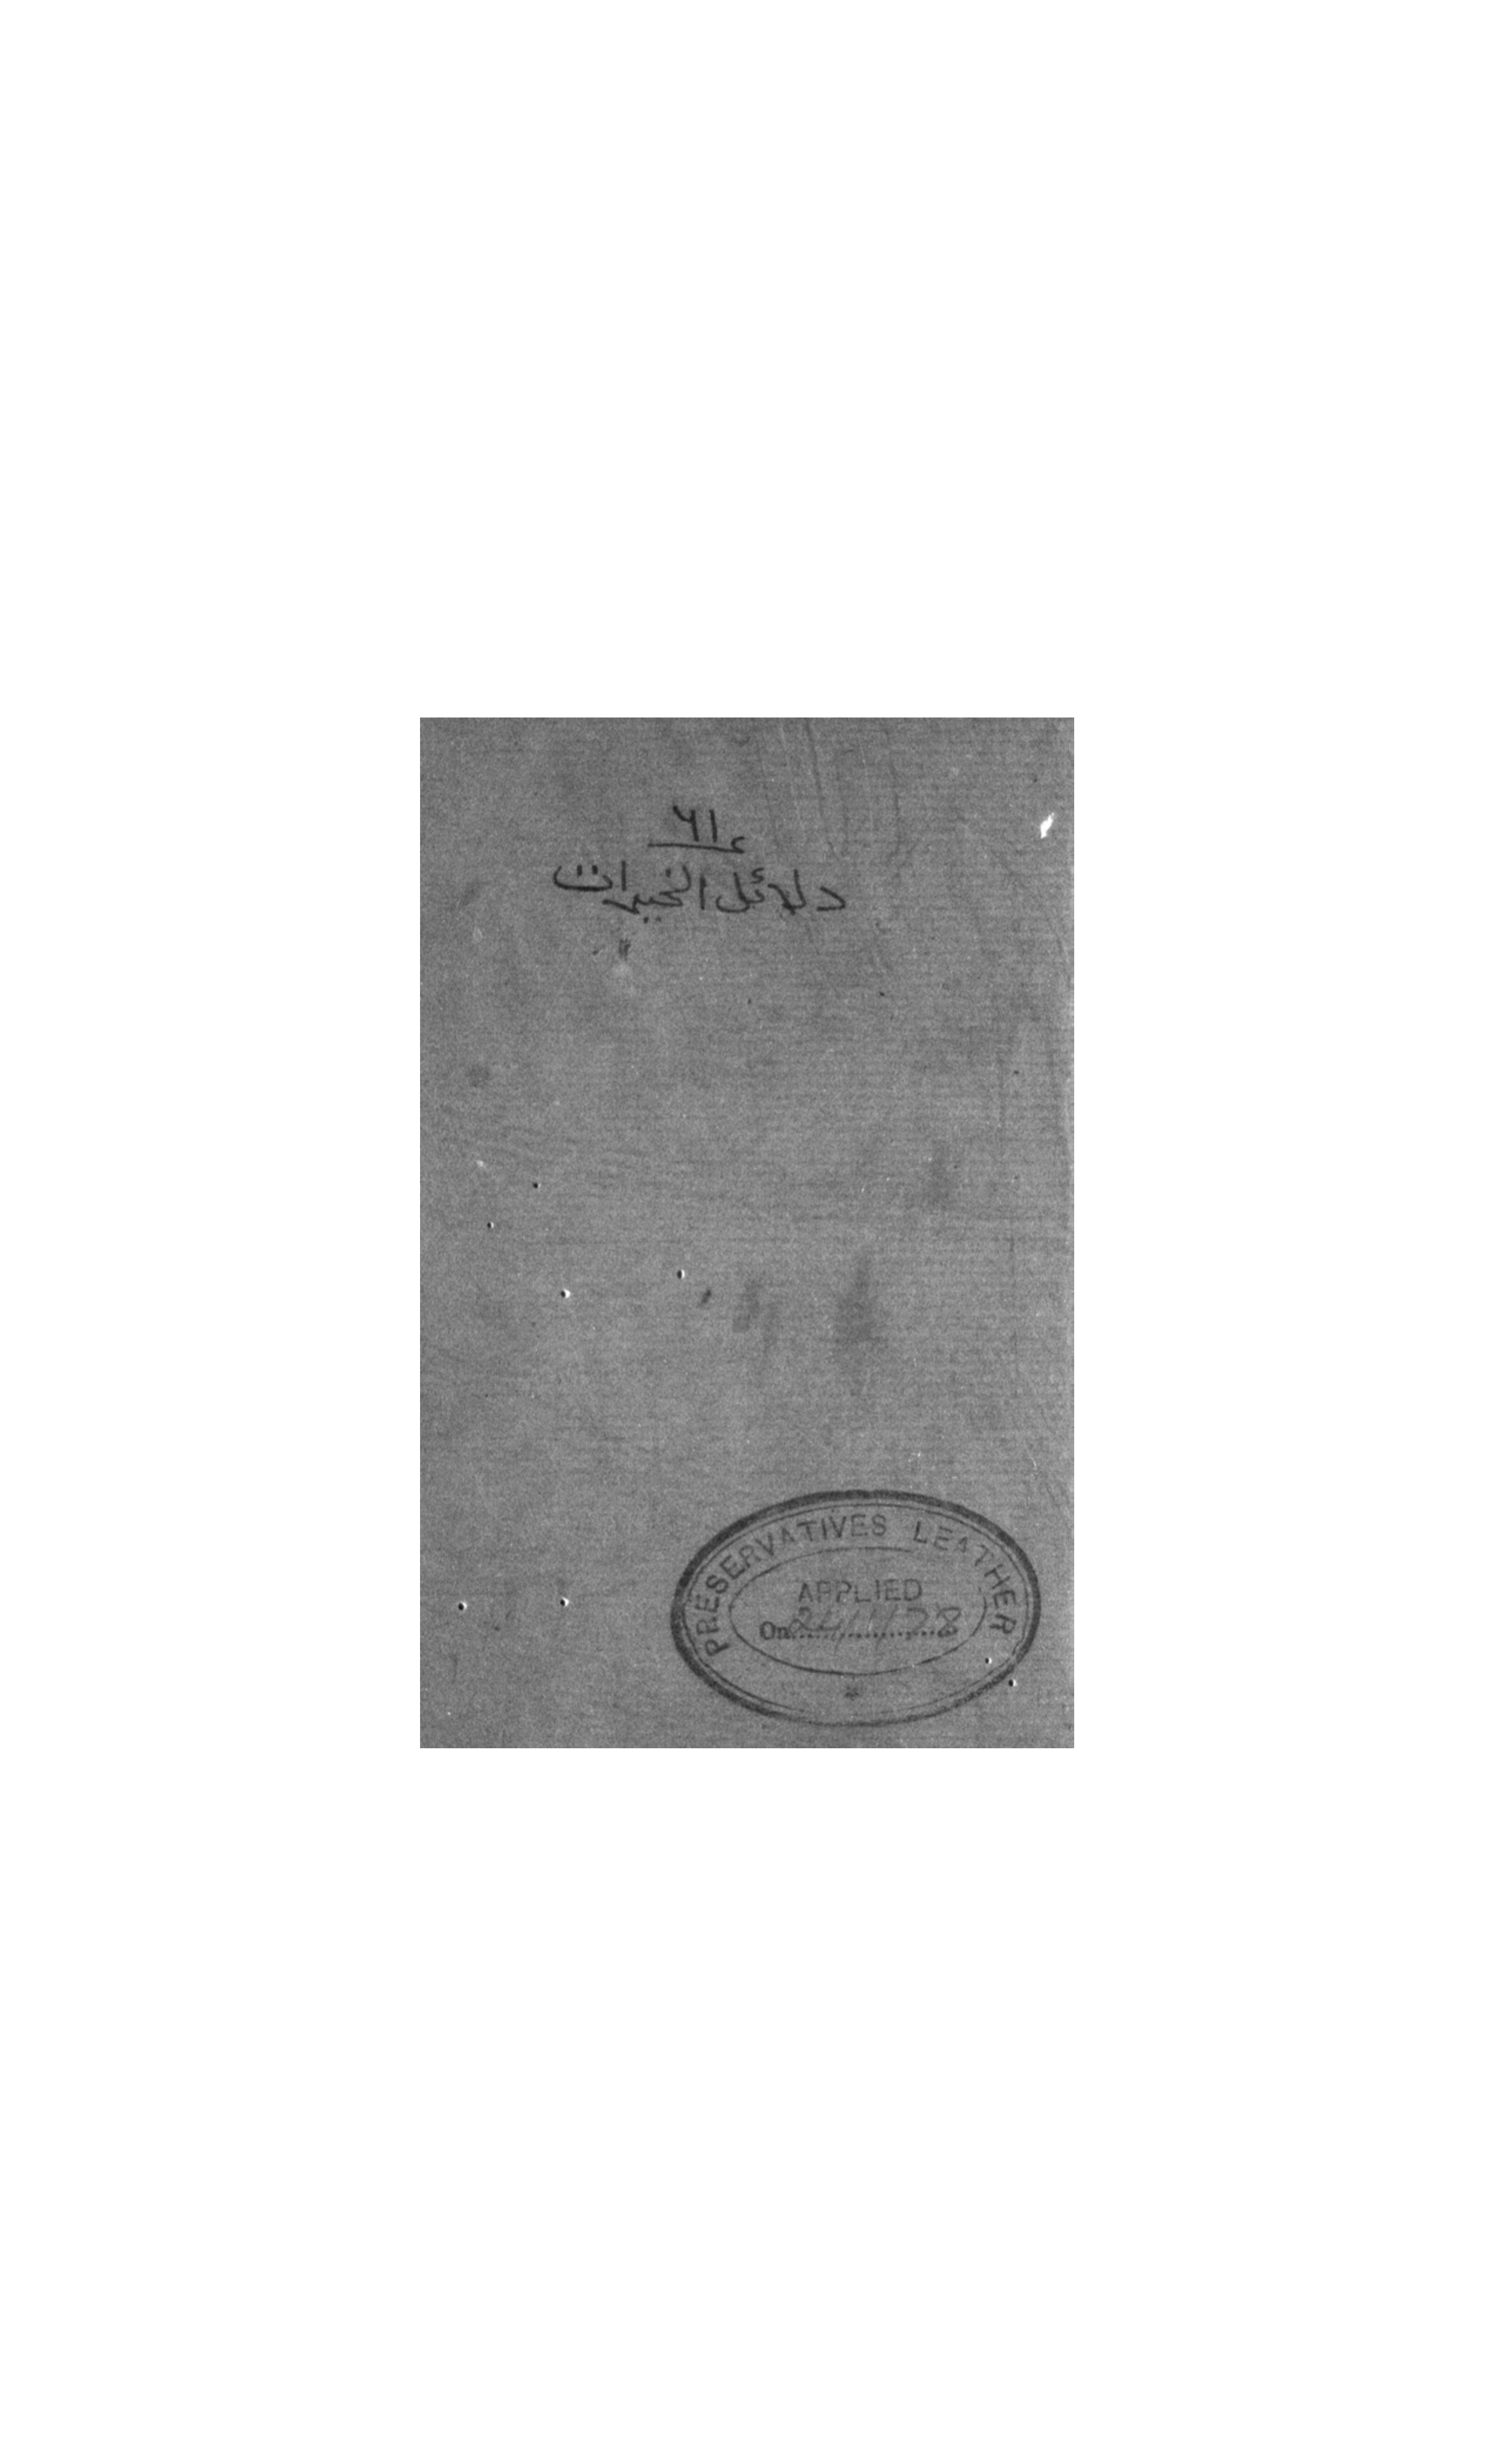 ٦١ء
دلائل الخيرات
PRESERVATIVES LEATHER
APPLIED
On